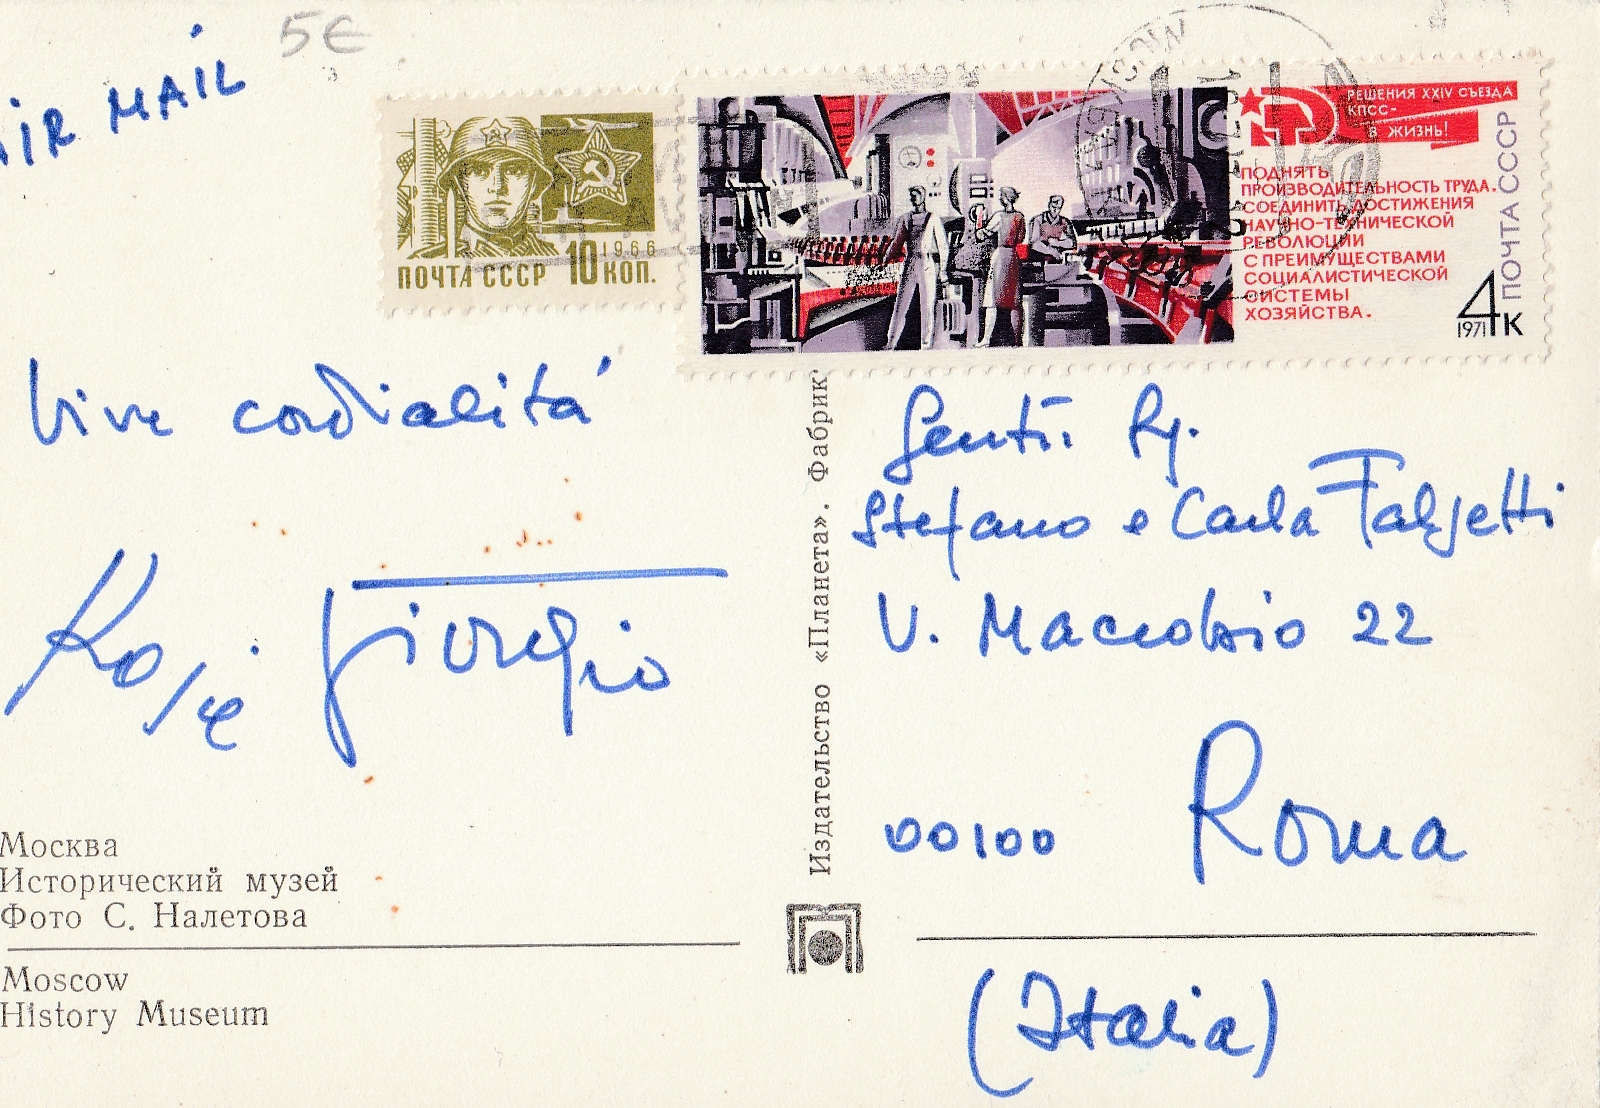 5€
AIR MAIL
1966
ПОЧТА СССР 10 КОП.
РЕШЕНИЯ XXIV СЪЕЗДА
КПСС-
В ЖИЗНЬ!
ПОДНЯТЬ
ПРОИЗВОДИТЕЛЬНОСТЬ ТРУДА.
СОЕДИНИТЬ ДОСТИЖЕНИЯ
НАУЧНО-ТЕХНИЧЕСКОЙ
РЕВОЛЮЦИИ
С ПРЕИМУЩЕСТВАМИ
СОЦИАЛИСТИЧЕСКОЙ
СИСТЕМЫ
ХОЗЯЙСТВА.
ПОЧТА СССР
1971 4к
Vive cordialitá
Giorgio
Москва
Исторический музей
Фото С. Налетова
Moscow
History Museum
Издательство «Планета». Фабрик
Gentil. Sg.
Stefano e Carla Falzetti
V. Macrobio 22
00100 Roma
(Italia)